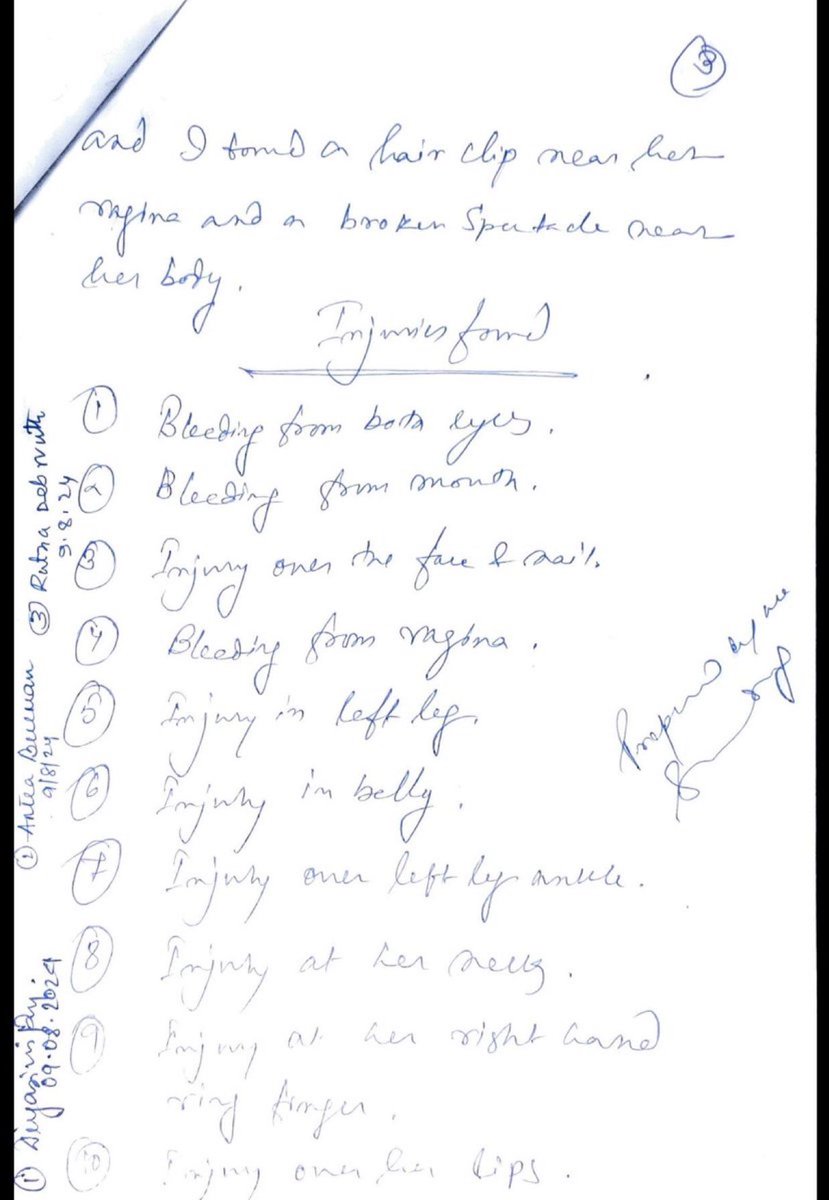 3
and I found a hair clip near her
vagina and a broken Spectacle near
her body.
Injuries found
1 Bleeding from both eyes.
2 Bleeding from mouth.
3 Injury over the face & nail.
4 Bleeding from vagina.
5 Injury in left leg.
6 Injury in belly.
7 Injury over left leg ankle.
8 Injury at her neck.
9 Injury at her right hand
ring finger.
10 Injury over her lips.
Prepared by me
① 
09.08.2024
② Antea
9/8/24
③ Ratna Debnath
9.8.24